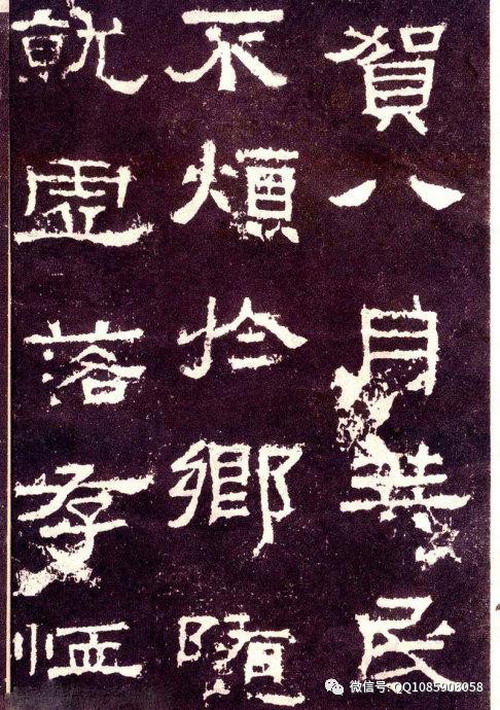 賀八月筭民
不煩扵鄉隨
就虛落存恤
微信号: